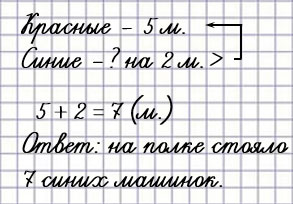 Красные – 5 м.
Синие – ? на 2 м. >
5 + 2 = 7 (м.)
Ответ: на полке стояло
7 синих машинок.